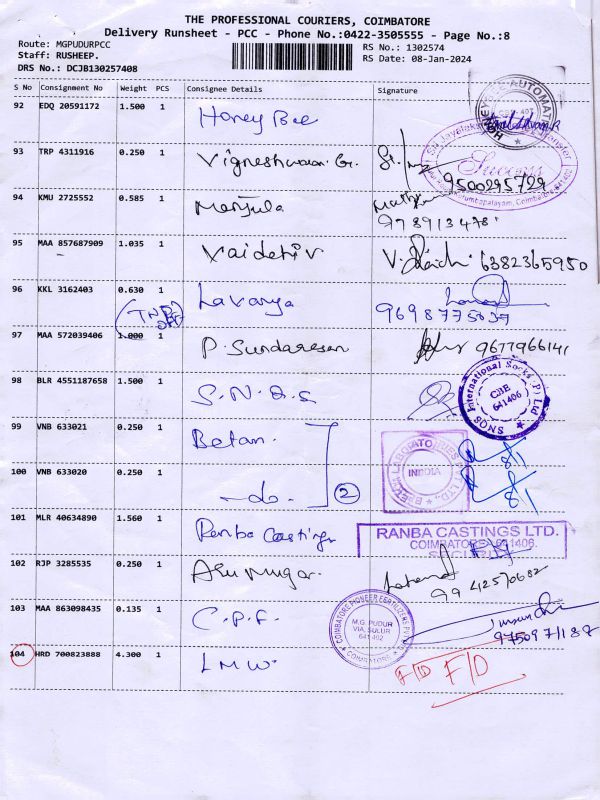 THE PROFESSIONAL COURIERS, COIMBATORE
Delivery Runsheet - PCC - Phone No.:0422-3505555 - Page No.:8
Route: MGPUDURPCC RS No.: 1302574
Staff: RUSHEEP. RS Date: 08-Jan-2024
DRS No.: DCJB130257408
S No Consignment No Weight PCS Consignee Details Signature
92 EDQ 20591172 1.500 1 Honey Bee
93 TRP 4311916 0.250 1 Vigneshwaran G. 9500295729
Success
94 KMU 2725552 0.585 1 Manjula
95 MAA 857687909 1.035 1 Vaidehi V 6382365950
96 KKL 3162403 0.630 1 Lavanya
97 MAA 572039406 1.000 1 P. Sundaresan 9677966141
98 BLR 4551187658 1.500 1 S.N.Q.S
SNQS International Socks (P) Ltd
CBE
641406
99 VNB 633021 0.250 1 8/1
INDIA
100 VNB 633020 0.250 1 -do- 2 8/1
101 MLR 40634890 1.560 1 Ranba Castings
RANBA CASTINGS LTD.
COIMBATORE - 641406.
SECURITY
102 RJP 3285535 0.250 1 Arumugar.
103 MAA 863098435 0.135 1 C.P.F.
COIMBATORE PIONEER FERTILIZERS
M.G. PUDUR
VIA. SULUR
641 402
COIMBATORE
104 HRD 700823888 4.300 1 LMW. F/D F/D